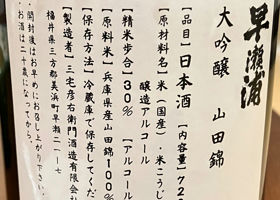 早瀬浦
大吟醸 山田錦
【品目】日本酒 【内容量】72
【原材料名】米(国産)・米こうじ
醸造アルコール
精米歩合】30% 【アルコール
【原料米】兵庫県産山田錦100%
【保存方法】冷蔵庫で保存してくだ
【製造者】三宅彦右衛門酒造有限会社
福井県三方郡美浜町早瀬21-7
開封後はお早めにお召し上がり下さい。
・お酒は二十歳になってから。